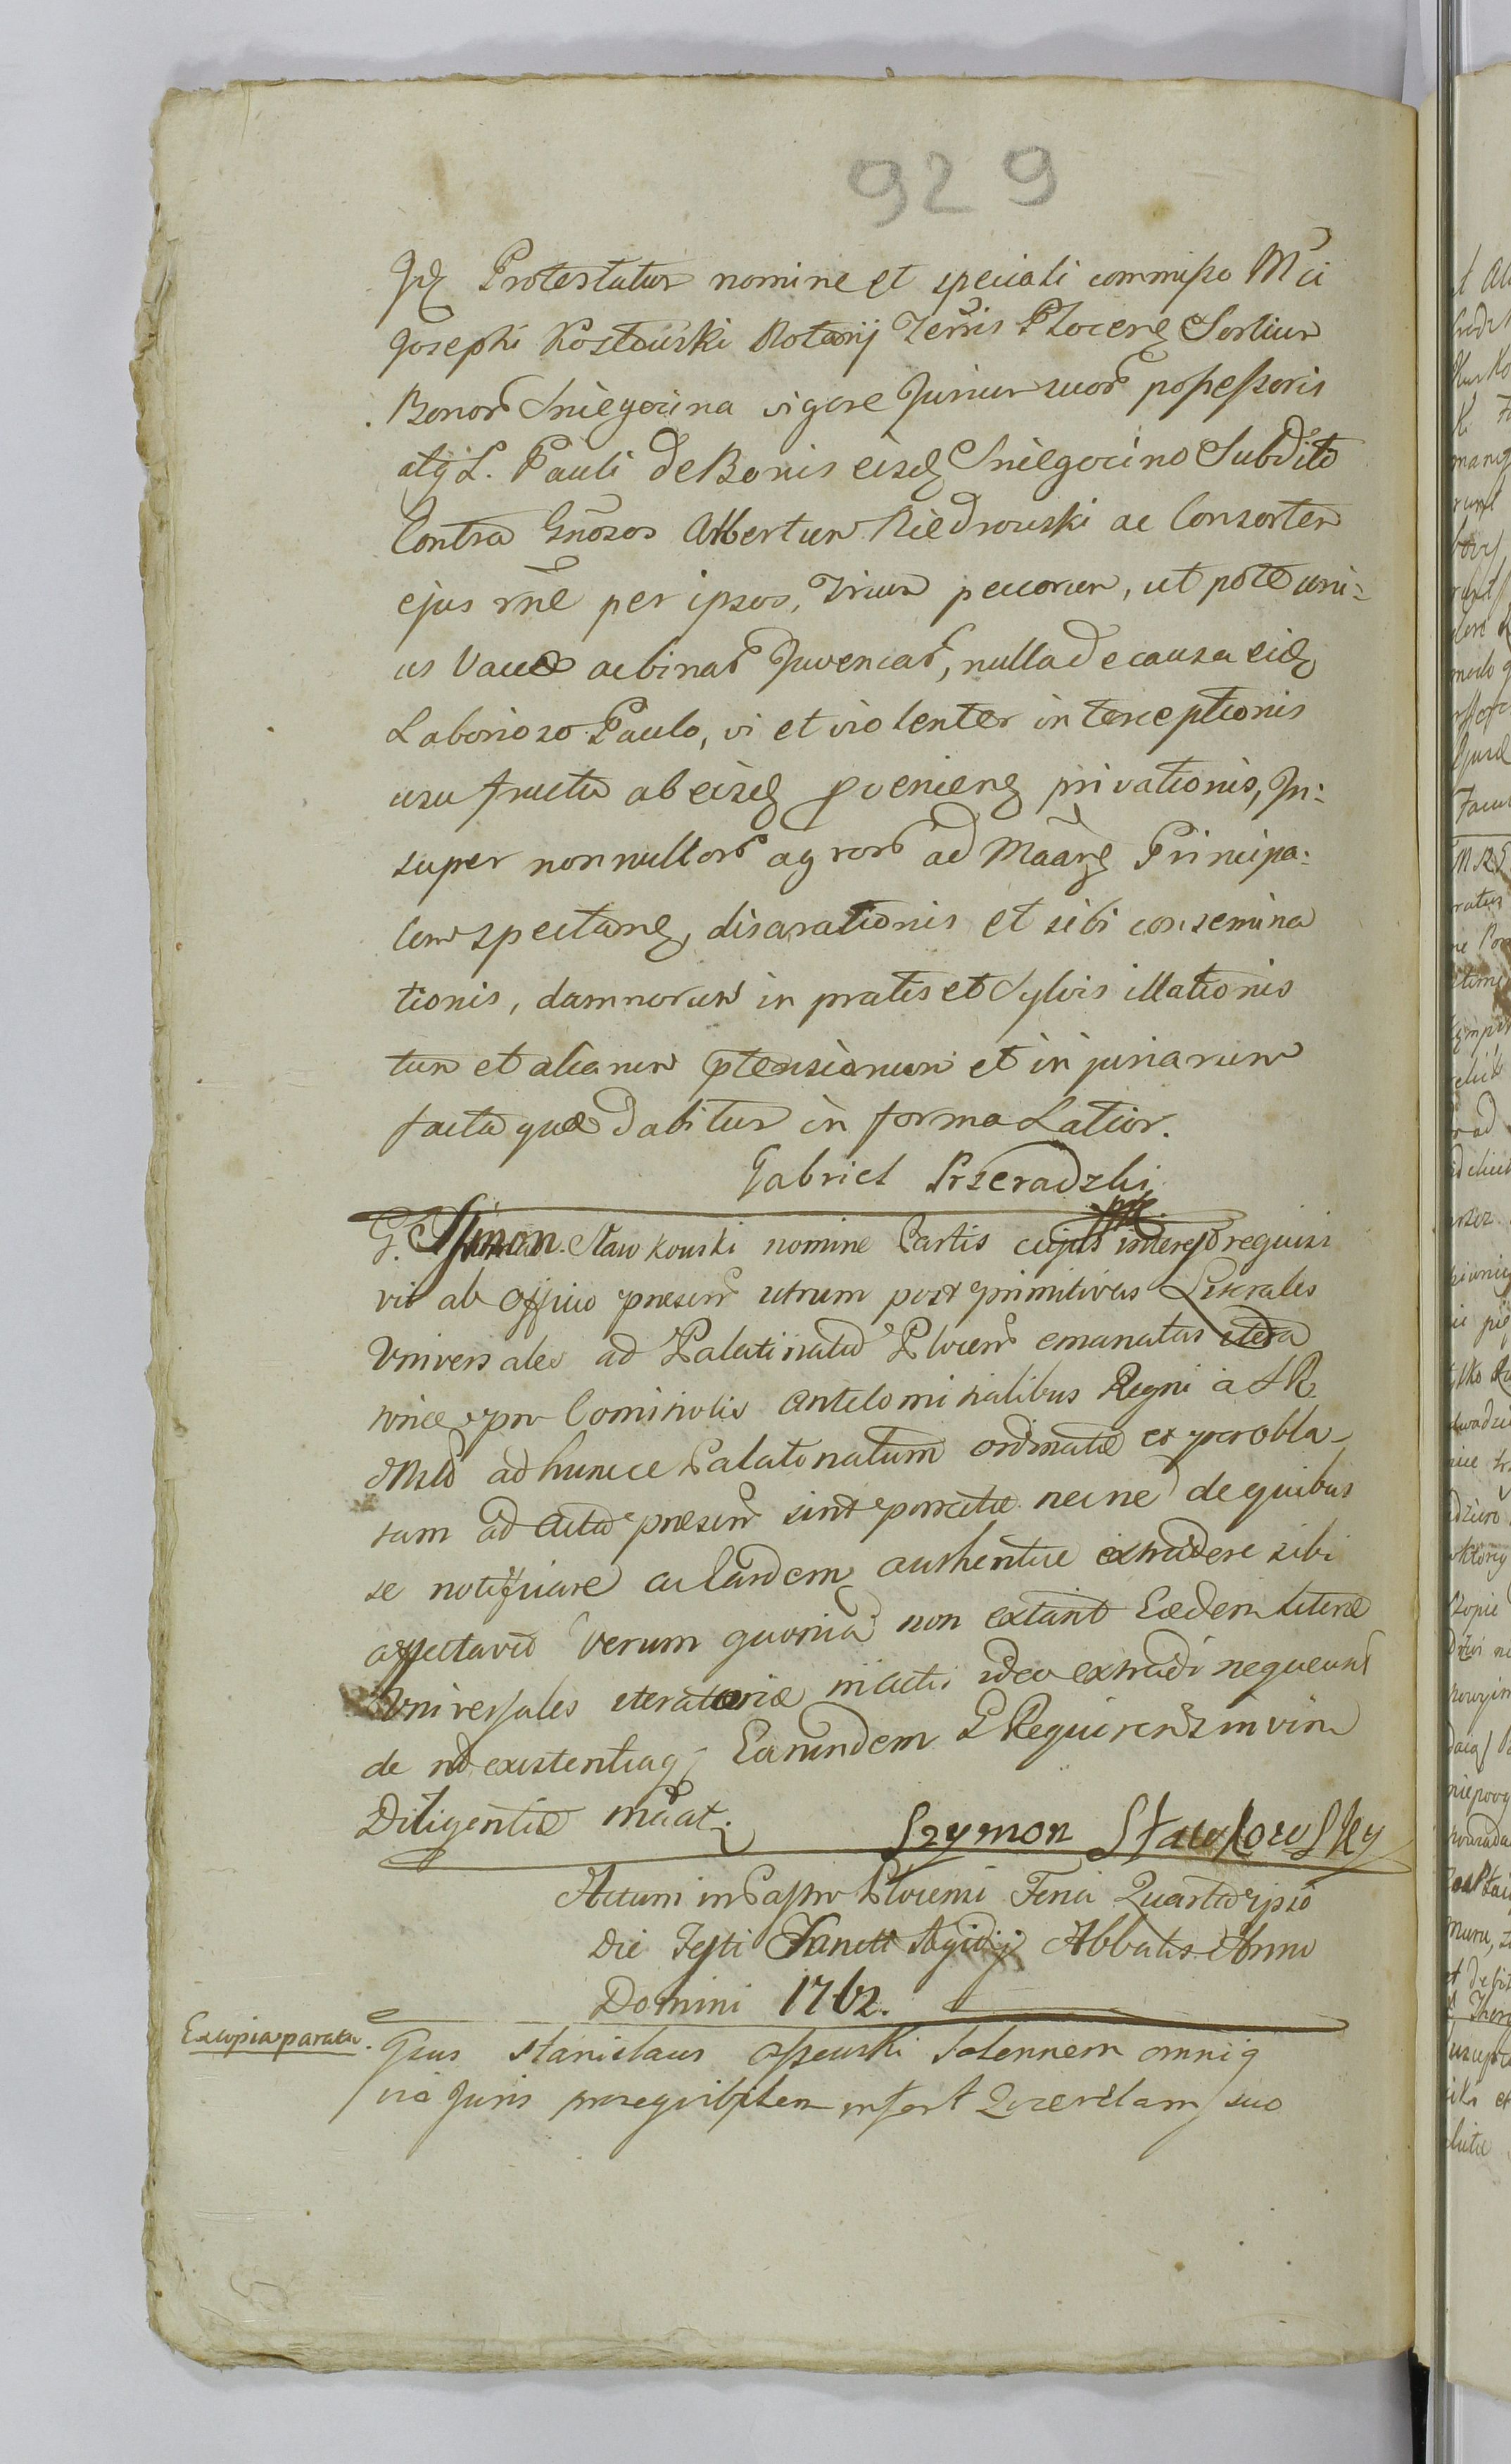 929
Protestatur nomine et speciali commisso Mci
Josephi Kostowski Notarij Terris Plocens Sortium
Bonor Sniegocina vigore Jurium suor possessoris
atq L. Pauli de Bonis eisd Sniegocino Subdito
Contra Gnosos Albertum Niedrowski ac Consortem
ejus rne per ipsos, Trium pecorum, ut pote uni-
us Vaccæ ac binar Juvencar, nulla de causa eid
Laborioso Paulo, vi et violenter interceptionis
usu fructu ab eisd proveniens privationis, In:
super nonnullor agror ad Principa:
lem spectans, disarationis et sibi consemina
tionis, damnorum in pratis et Sylvis illationis
tum et aliarum ptensionum et injuriarum
facta quæ dabitur in forma Latior.
Gabriel Przeradzki
G. Simon Stawkowski nomine Partis cujus interest requisi
vit ab officio præsen utrum post primitivas Literales
Universales ad Palatinatu Plocens emanatas itera
toriæ pro Comitiolis Antecomitialibus Regni à SR
Mtte ad huncce Palatinatum ordinatæ et per obla-
tam ad Acta præsen sint porrectæ necne de quibus
se notificare ac Eandem authentice extradere sibi
affectavit Verum quoniã non extant Eædem Literæ
Universales iteratoriæ in actis ideo extradi nequeunt
de nõ existentiaq Earundem G Requirens in vim
Diligentiæ mãat.
Szymon Stawkowsky
Actum in Castro Plocensi Feria Quarta ipso
Die Festi Sancti Ægidij Abbatis Anno
Domini 1762.
Excopia parata.
Gsus Stanislaus Ossowski Solennem omniq
via Juris prosequibilem infert Querelam suo